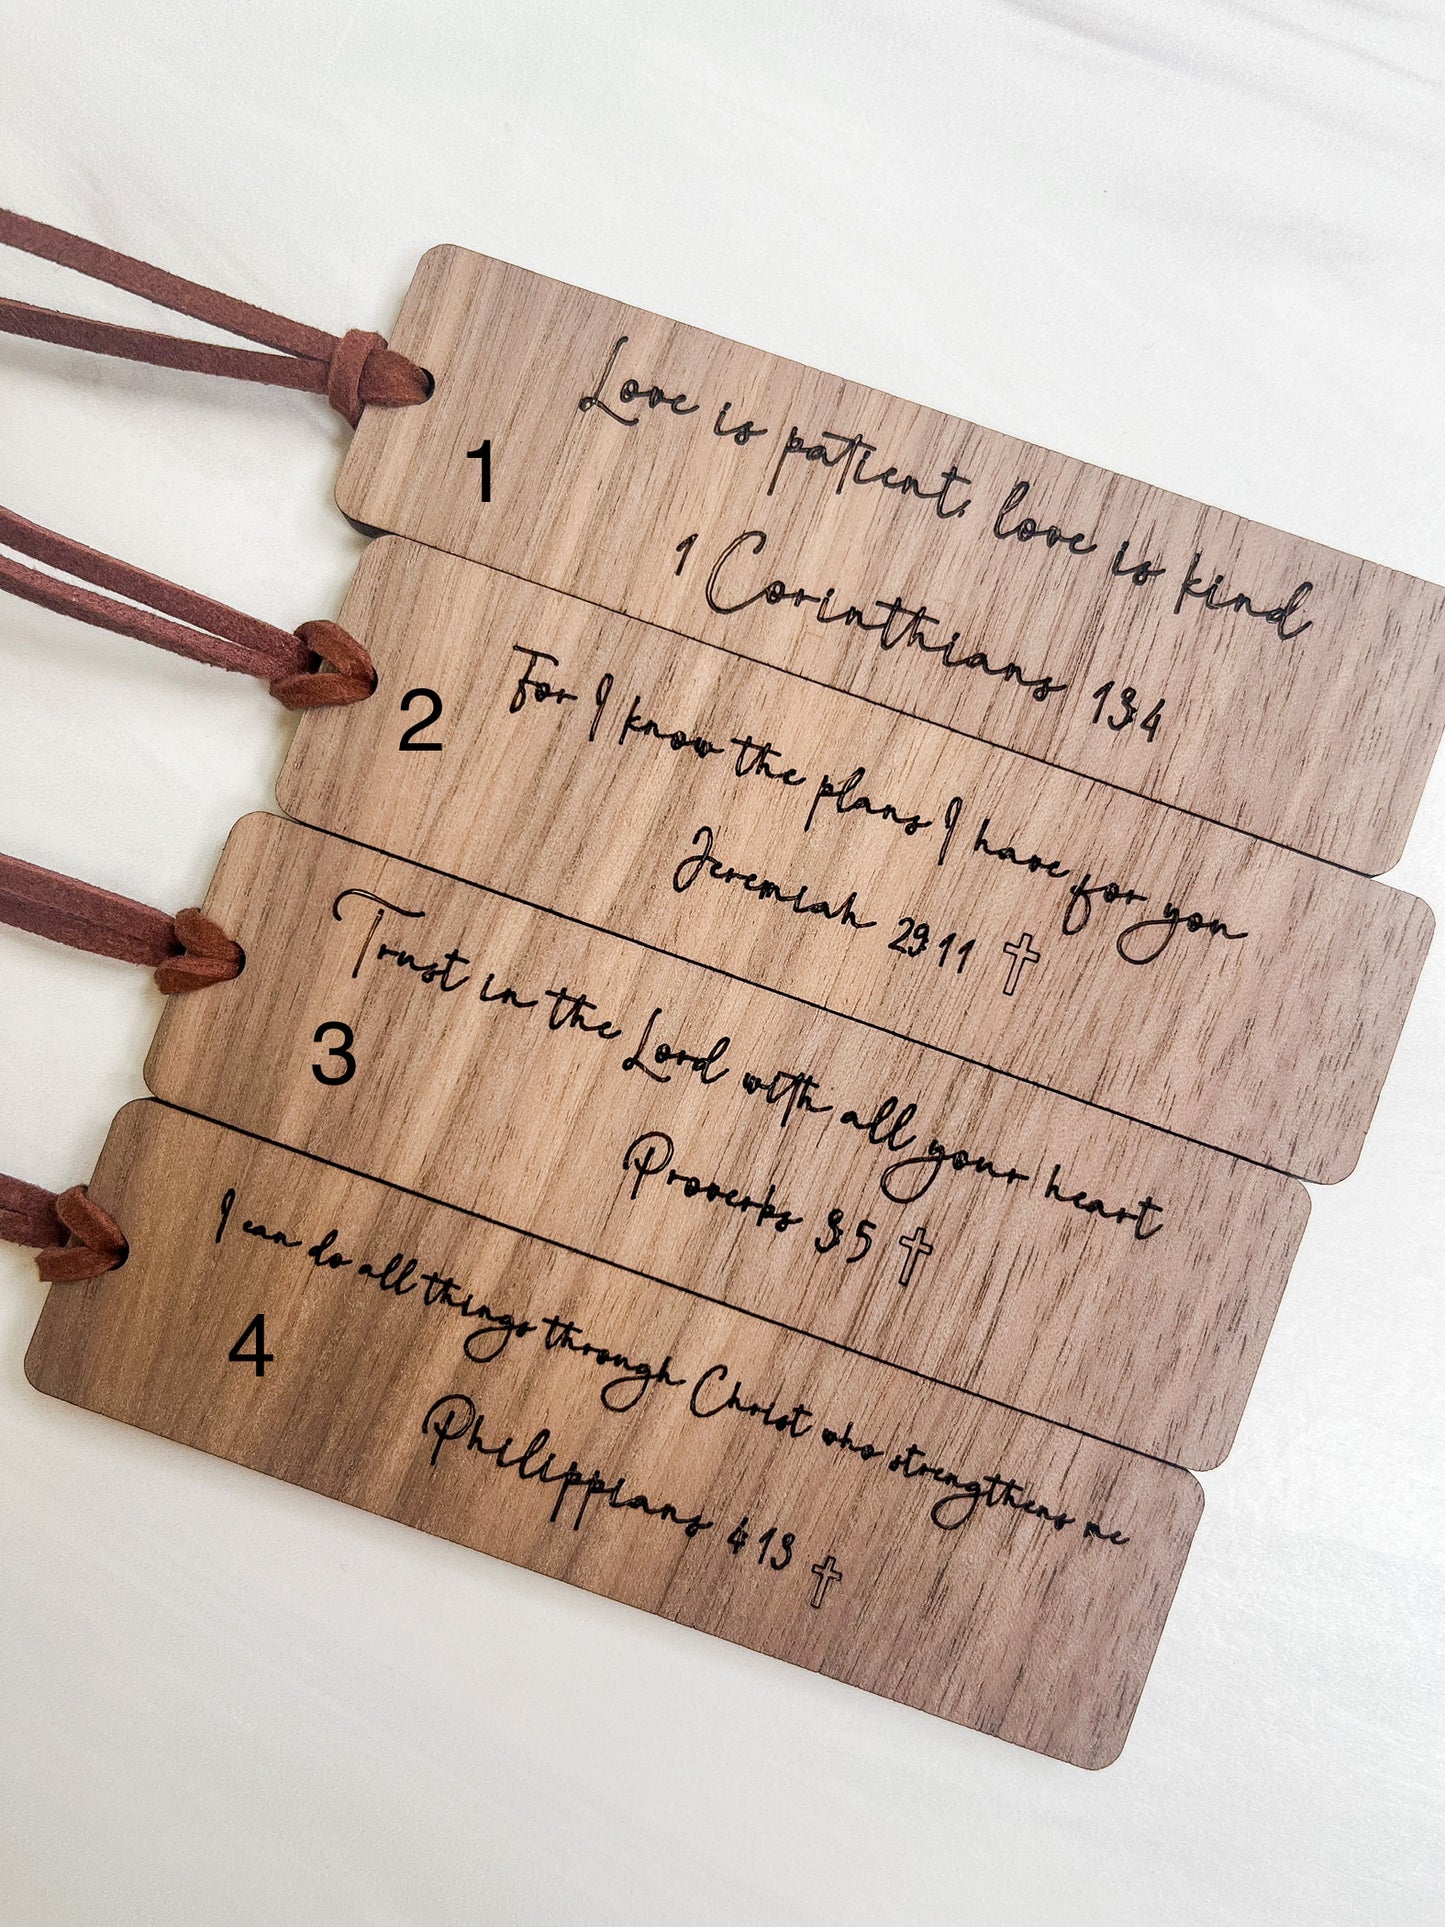 Love is patient, love is kind
1 Corinthians 13:4
1
For I know the plans I have for you
Jeremiah 29:11
2
Trust in the Lord with all your heart
Proverbs 3:5
3
I can do all things through Christ who strengthens me
Philippians 4:13
4